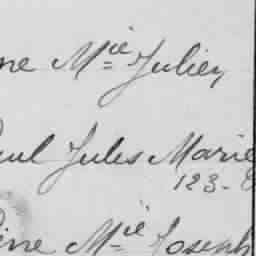 ne Mie Julien
aul Jules Marie
123-
ine Mie Joseph